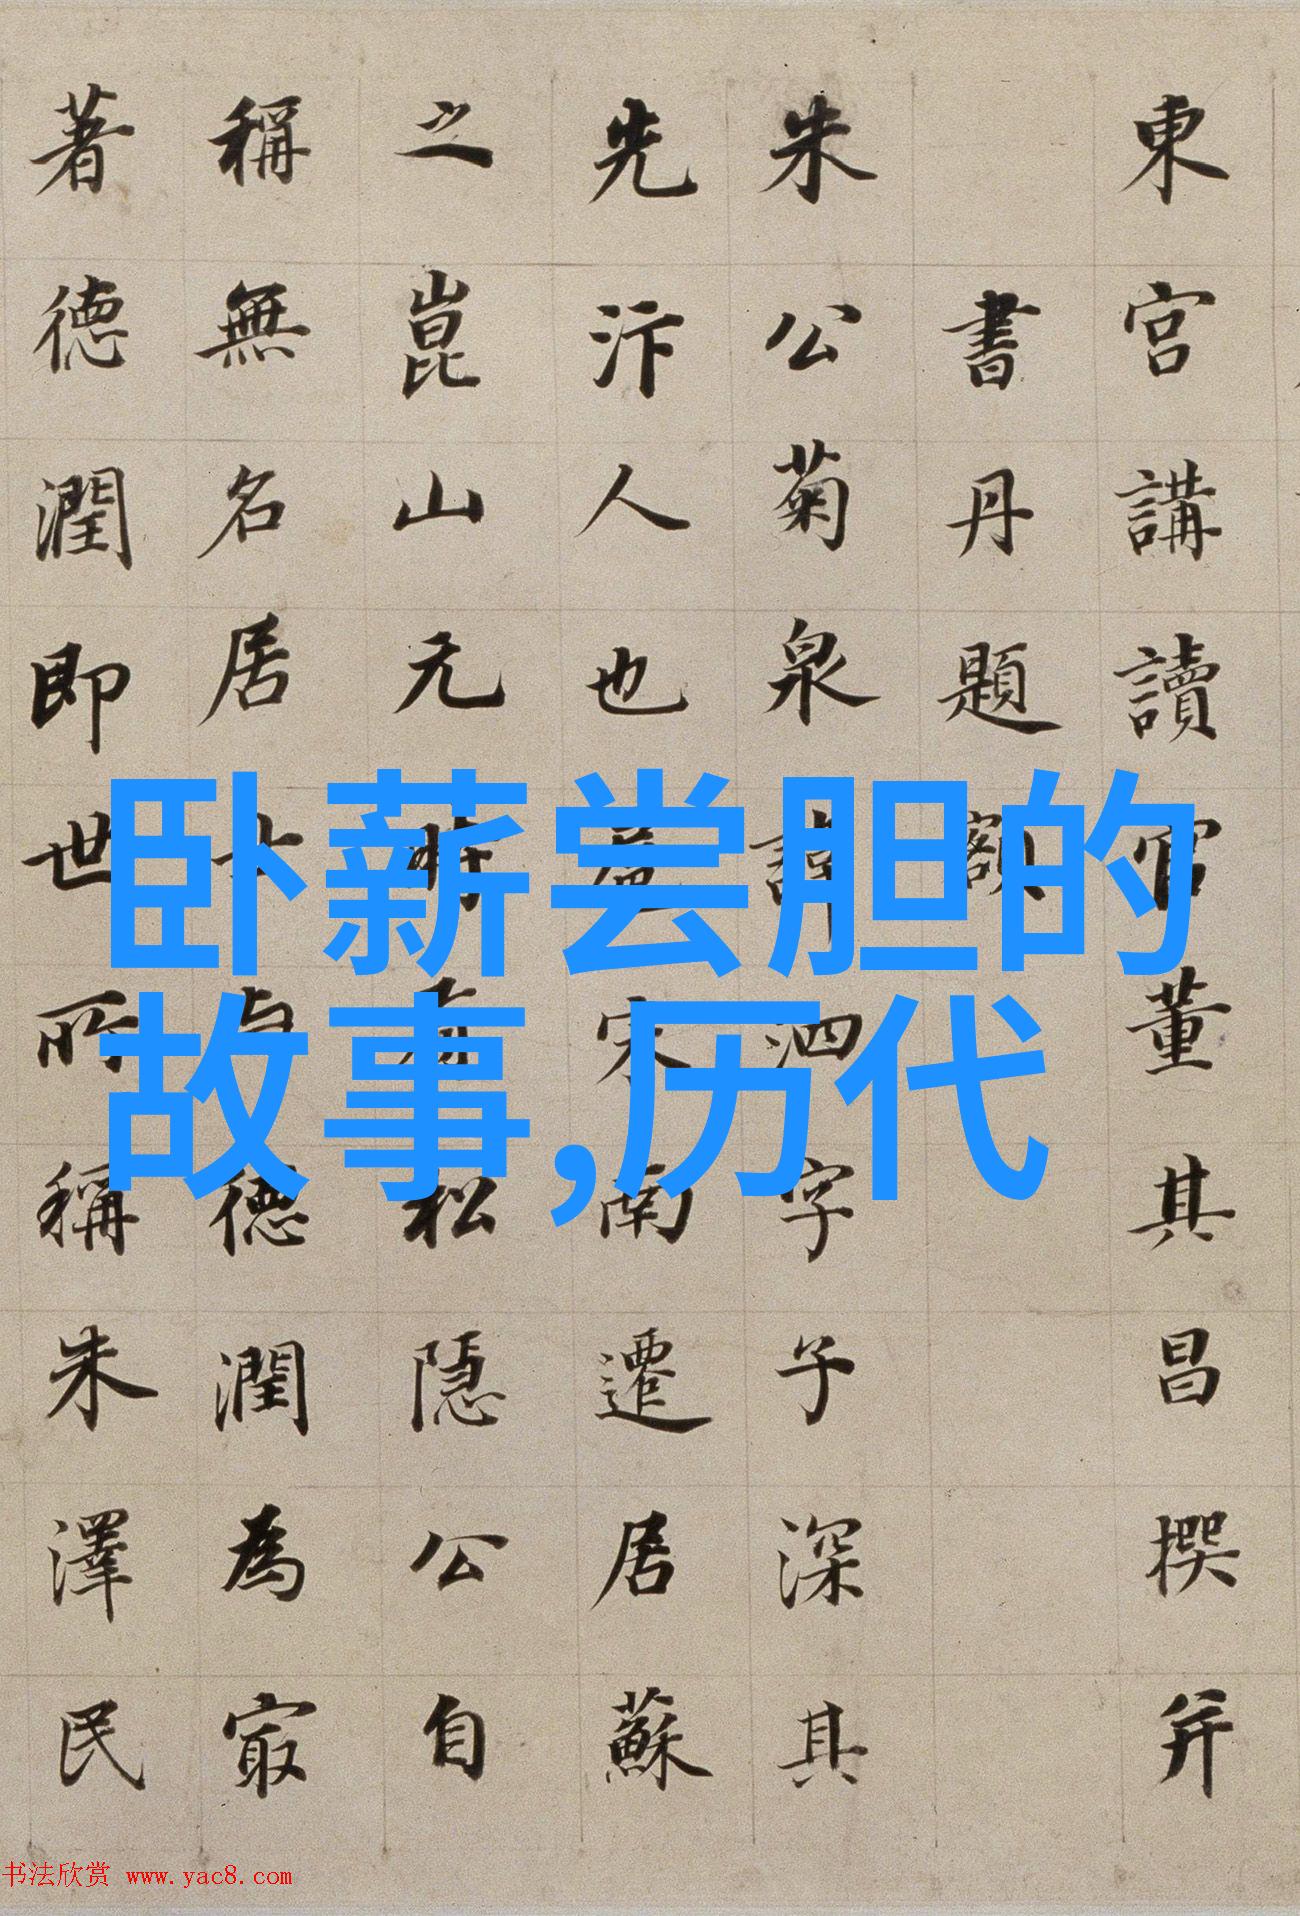 卧薪尝胆的
故事,历代
東宮講讀官董其昌撰并
書丹題額
朱公菊泉諱泗字子深其
先汴人也蓋宋南遷居蘇
之崑山元時有松隱公自
稱無名居士与德潤為冣
著德潤即世所稱朱澤民
书法欣赏 www.yac8.com